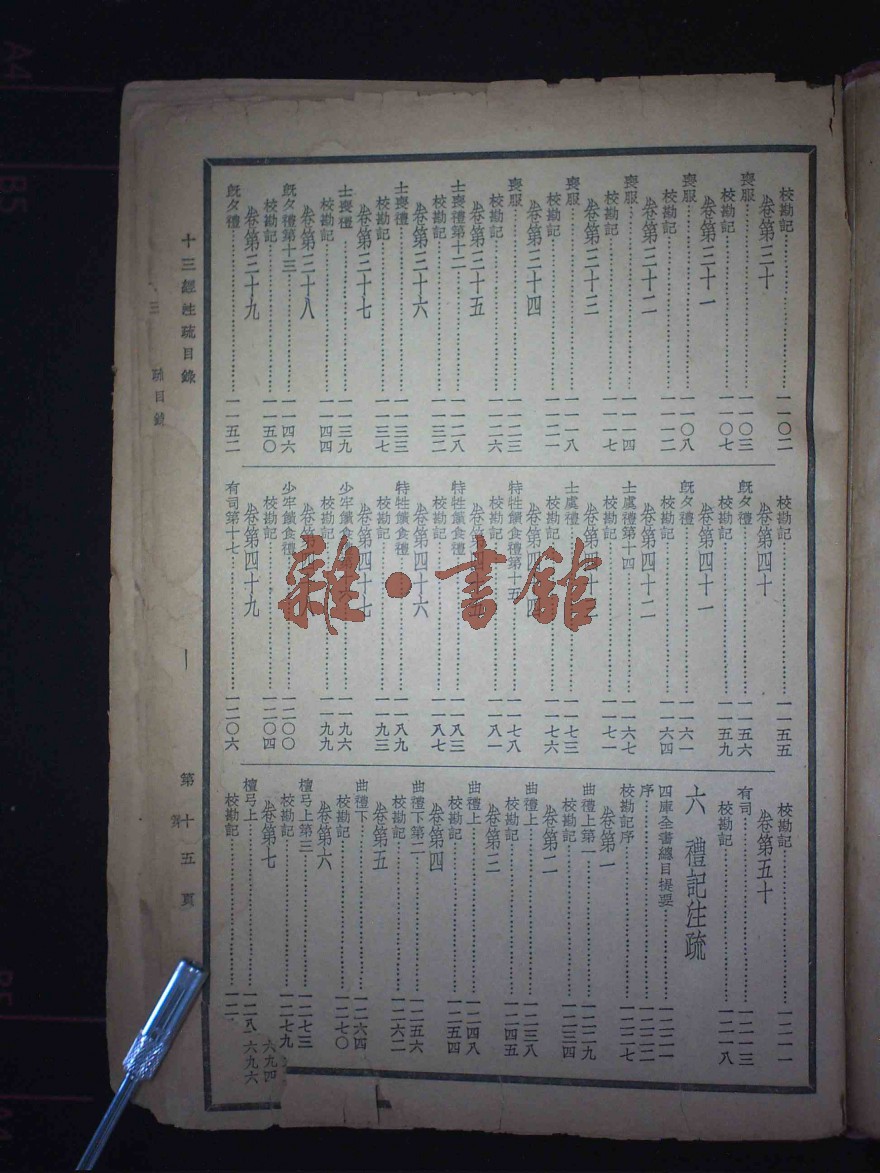 校勘記……一一〇二
卷第三十
喪服……一一〇三
校勘記……一一〇七
卷第三十一
喪服……一一〇八
校勘記……一一一二
卷第三十二
喪服……一一一四
校勘記……一一一七
卷第三十三
喪服……一一一八
校勘記……一一二一
卷第三十四
喪服……一一二三
校勘記……一一二六
卷第三十五
士喪禮第十二……一一二八
校勘記……一一三二
卷第三十六
士喪禮……一一三三
校勘記……一一三七
卷第三十七
士喪禮……一一三九
校勘記……一一四四
卷第三十八
旣夕禮第十三……一一四六
校勘記……一一五〇
卷第三十九
旣夕禮……一一五二
校勘記……一一五五
卷第四十
旣夕禮……一一五六
校勘記……一一五九
卷第四十一
旣夕禮……一一六一
校勘記……一一六四
卷第四十二
士虞禮第十四……一一六七
校勘記……一一七一
卷第四十
士虞禮……一一七三
校勘記……一一七六
卷第四十四
特牲饋食禮第十五……一一七八
校勘記……一一八一
卷第
特牲饋食禮……一一八三
校勘記……一一八七
卷第四十六
特牲饋食禮……一一八九
校勘記……一一九三
卷第四十七
少牢饋食禮……一一九六
校勘記……一一九九
卷第
少牢饋食禮……一二〇〇
校勘記……一二〇四
卷第四十九
有司第十七……一二〇六
校勘記……一二一一
卷第五十
有司……一二一三
校勘記……一二一八
六 禮記注疏
四庫全書總目提要……一二二一
序……一二二二
校勘記序……一二二七
卷第一
曲禮上第一……一二二九
校勘記……一二三四
卷第二
曲禮上……一二三八
校勘記……一二四五
卷第三
曲禮上……一二四八
校勘記……一二五四
卷第四
曲禮下第二……一二五六
校勘記……一二六二
卷第五
曲禮下……一二六四
校勘記……一二七〇
卷第六
檀弓上第三……一二七三
校勘記……一二七九
卷第七
檀弓上……一二八
校勘記……一二
六九四
六九六
十三經注疏目錄
第十五頁
疏目錄
雜·書館